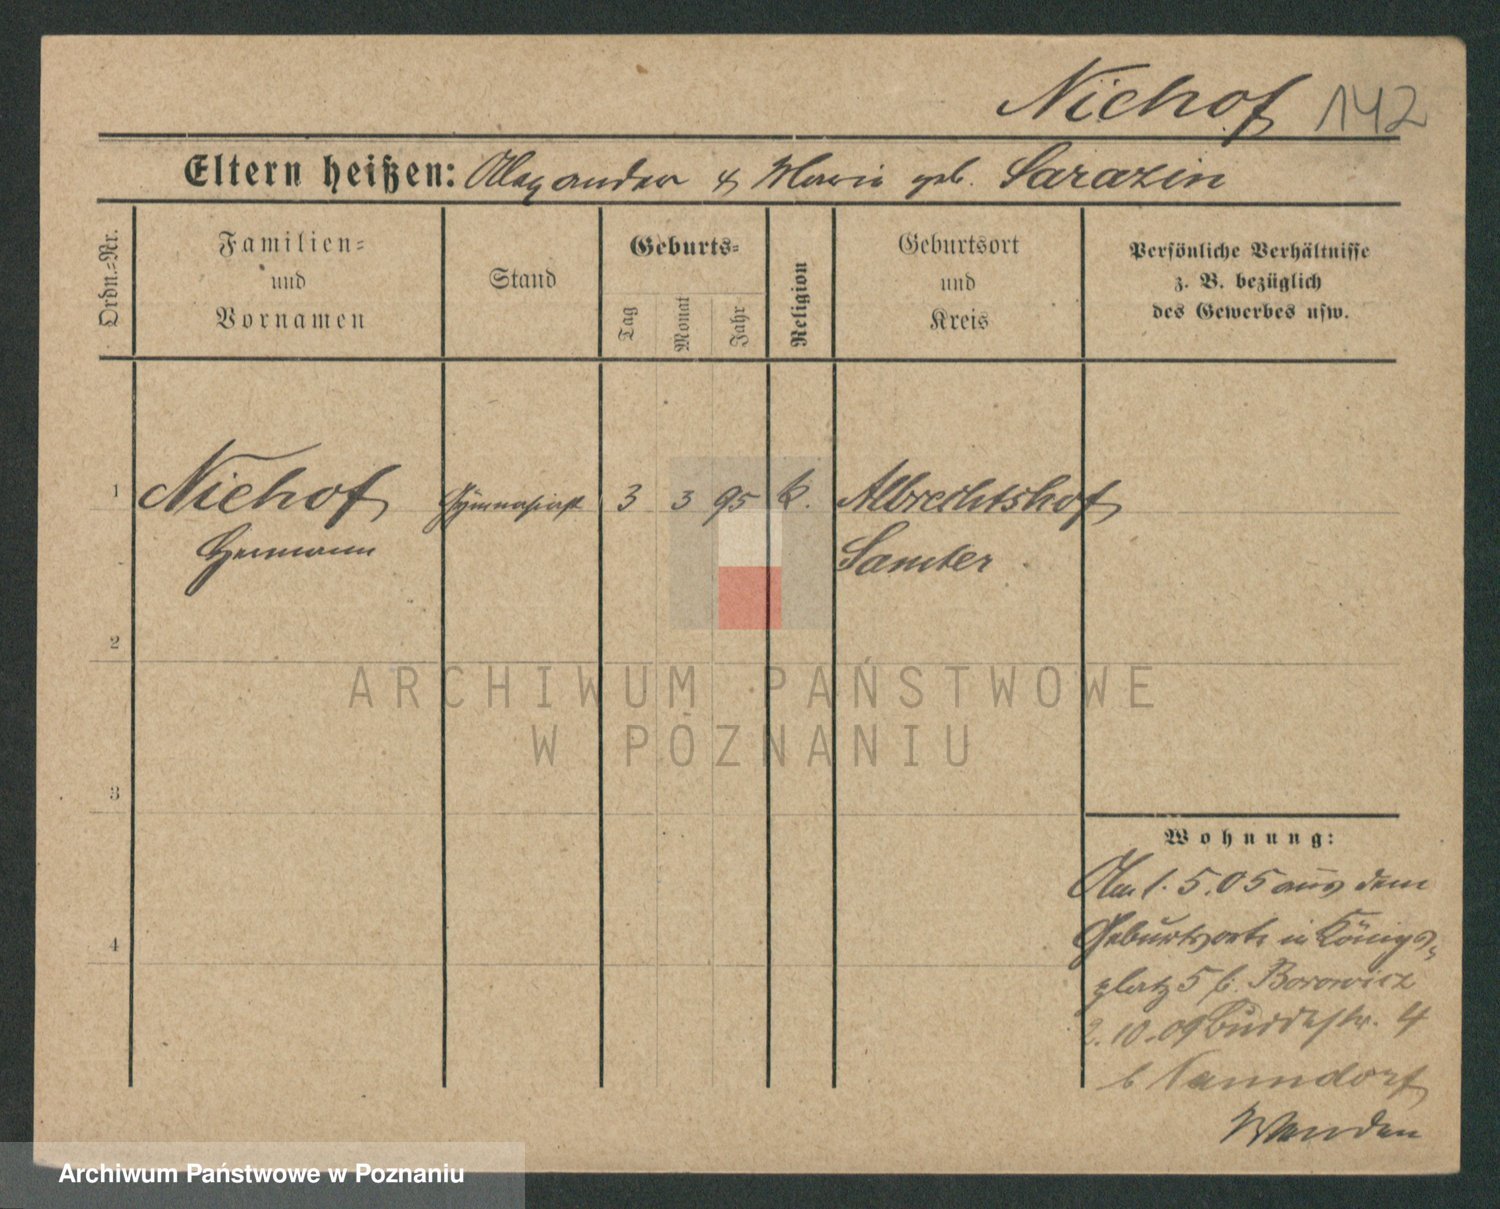 Niehof 142
Eltern heißen: Alexander & Maria geb. Sarazin
Ordn.-Nr.
Familien-
und
Vornamen
Stand
Geburts-
Tag
Monat
Jahr
Religion
Geburtsort
und
Kreis
Persönliche Verhältnisse
z. B. bezüglich
des Gewerbes usw.
1 Niehof Gymnasiast 3 3 95 k. Albrechtshof
Hermann Samter
2
3
4
Wohnung:
Am 1. 5. 05 aus dem
Geburtsorte in Königs-
platz 5 b. Borowicz
2. 10. 09 4
b
Wenden
ARCHIWUM PAŃSTWOWE
W POZNANIU
Archiwum Państwowe w Poznaniu